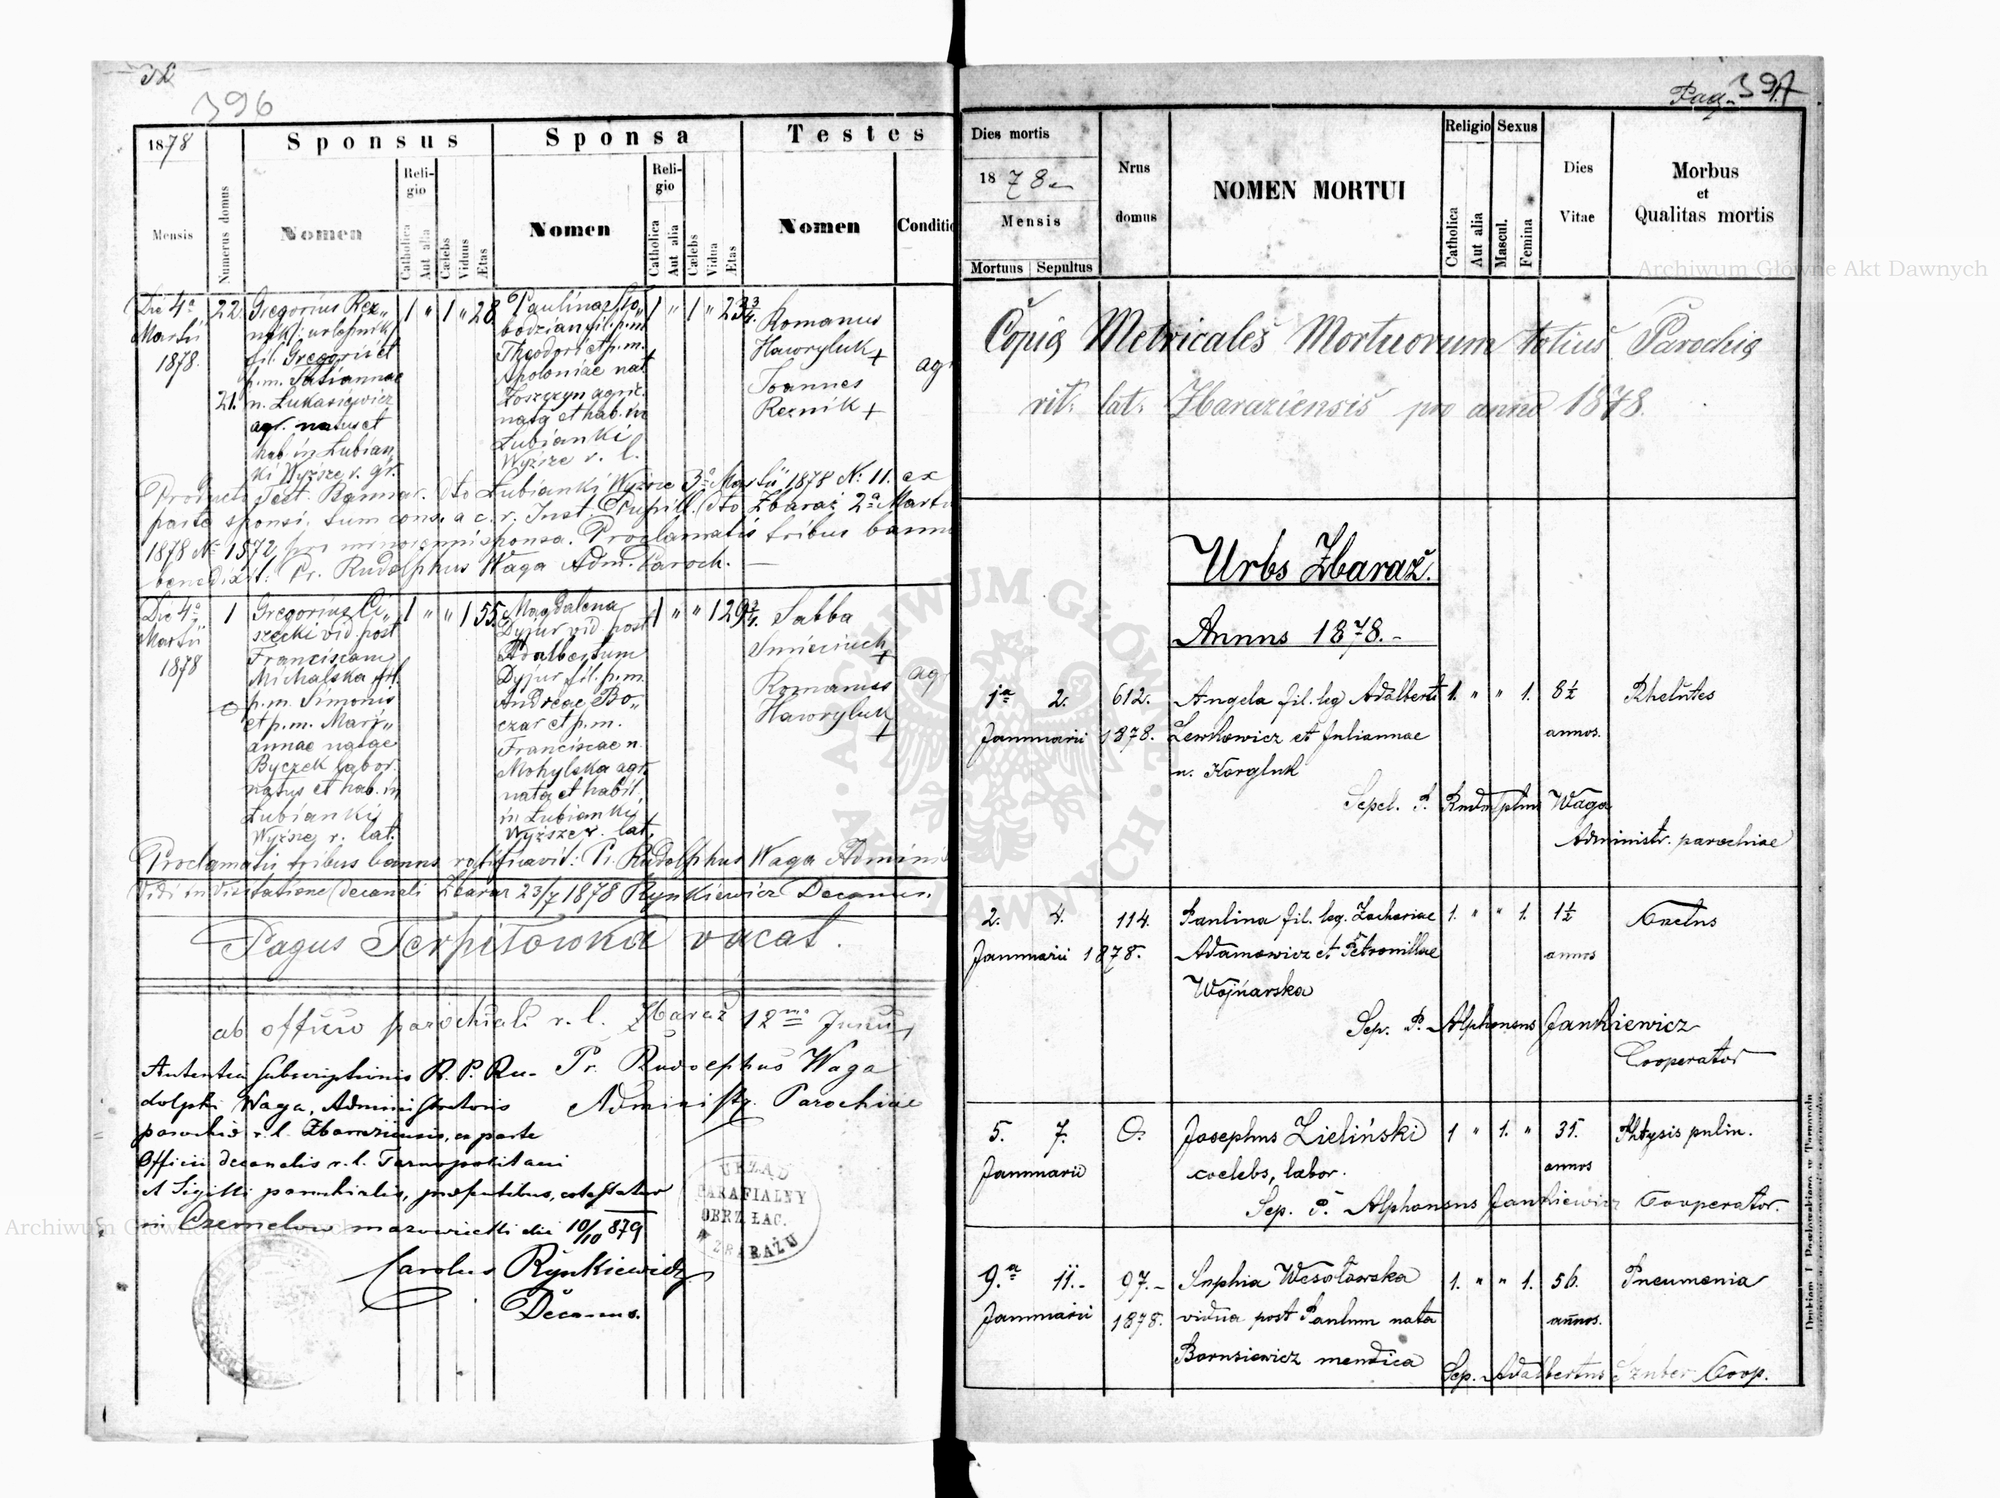 396
1878
Sponsus
Sponsa
Testes
Mensis
Numerus domus
Nomen
Religio
Catholica
Aut alia
Cælebs
Viduus
Ætas
Nomen
Religio
Catholica
Aut alia
Cælebs
Vidua
Ætas
Nomen
Conditio
Die 4a
Martii
1878.
22.
21.
Gregorius Rez„
nik
fil. Gregorii et
p.m. Tatiannae
n. Lukasiewicz
agr. natus et
hab. in Łubian„
ki Wyższe r. gr.
1 " 1 " 28
Paulina
fil. p.m.
Theodori et p.m.
Apoloniae nat
agric.
nata et hab. in
Łubianki
Wyższe r. l.
1 " 1 " 23 3/4.
Romanus
Hawryluk +
Joannes
Reznik +
agr
Łubianki Wyższe 3a Martii 1878 N: 11. ex
parte sponsi, tum cons. a c. r. Inst. Pupill. dto Zbaraż 2a Martii
1878 N: 1572 sponsa. Proclamatis tribus bannis
benedixit: Pr. Rudolphus Waga Adm. Paroch. —
Die 4a
Martii
1878
1
Gregorius Ci„
szecki vid. post
Franciscam
Michalska fil.
p.m. Simonis
et p.m. Mary„
annae natae
Byczek labor.
natus et hab. in
Łubianki
Wyższe r. lat.
1 " " 1 55.
Magdalena
Dyjur vid. post
Adalbertum
Dyjur fil. p.m.
Andreae Bo„
czar et p.m.
Franciscae n.
Mohylska agr.
nata et habit.
in Łubianki
Wyższe r. lat.
1 " " 1 29 3/4.
Sabba
+
Romanus
Hawryluk
+
ag
Proclamatis tribus bannis ratificavit: Pr. Rudolphus Waga Adminis
Vidi in visitatione decanali Zbaraż 23/7 1878 Rynkiewicz Decanus.
Pagus Terpiłowka vacat.
ab officio parochiali r. l. Zbaraż 12ma Junii
Pr. Rudolphus Waga
Administr. Parochiae
Autentia subscriptionis R. P. Ru-
dolphi Waga, Administratoris
parochiae r. l. Zbaraziensis, ex parte
Officii decanalis r. l. Tarnopolitani
et Sigilli parochialis, praesentibus, contestatur
in Czernelow mazowiecki die 10/10 879
Carolus Rynkiewicz
Decanus.
URZĄD
PARAFIALNY
OBRZ. ŁAC.
W ZBARAŻU
Pag. 397
Dies mortis
1878
Mensis
Mortuus Sepultus
Nrus
domus
NOMEN MORTUI
Religio
Catholica
Aut alia
Sexus
Mascul.
Femina
Dies
Vitae
Morbus
et
Qualitas mortis
Copia Metricales Mortuorum totius Parochia
rit. lat. Zbaraziensis pro anno 1878.
Urbs Zbaraż.
Annus 1878.-
1a 2. 612. Angela fil. leg Adalberti 1. " " 1. 8½ Rheumtes
Januarii 1878. Lewkowicz et Juliannae annos.
n. Korgluk
Sepel. P. Rudolphus Waga
Administr. parochiae
2. 4. 114. Paulina fil. leg. Zachariae 1. " " 1. 1½
Januarii 1878. Adamowicz et Petronillae annos
Wojnarska
Sep. P. Alphonsus Jankiewicz
Cooperator
5. 7. 0. Josephus Zieliński 1 " 1. " 35. Phtysis pulm.
Januarii coelebs, labor. annos
Sep. P. Alphonsus Jankiewicz Cooperator.
9.a 11.- 97.- Sophia Wesołowska 1. " " 1. 56. Pneumonia
Januarii 1878. vidua post Paulum nata annos.
Borusiewicz mendica
Sep. Adalbertus Szuber Coop.
Archiwum Główne Akt Dawnych
Archiwum Główne Akt Dawnych
ARCHIWUM GŁÓWNE AKT DAWNYCH